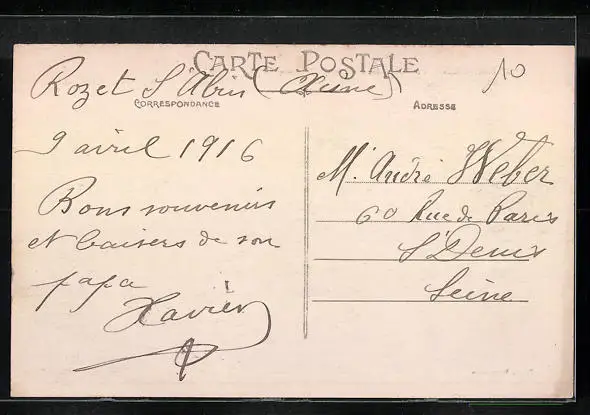 CARTE POSTALE
10
Rozet St Albin (Aisne)
CORRESPONDANCE
ADRESSE
9 avril 1916
Bons souvenirs
et baisers de son
papa
Xavier
Mr. André Weber
60 Rue de Paris
St Denis
Seine